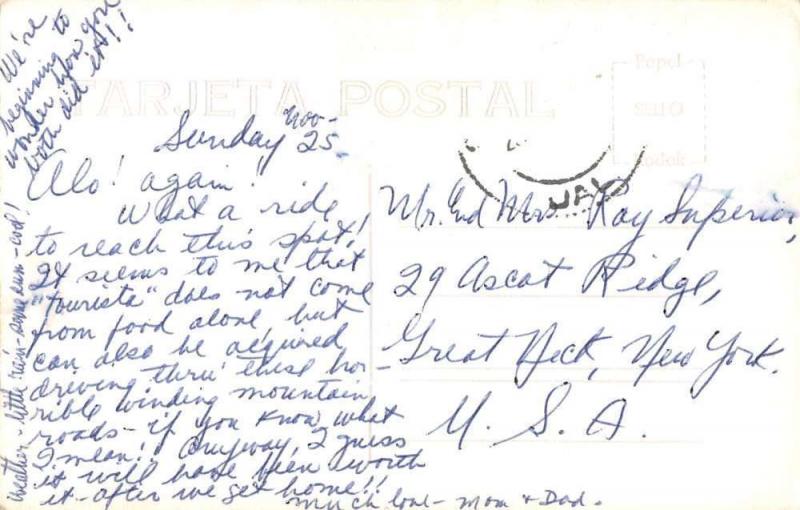 We're
beginning to
wonder how you
both did it!!
TARJETA POSTAL
Papel
SELLO
Kodak
Sunday Nov-
25.
Alo! again!
What a ride
to reach this spot!
It seems to me that
"tourista" does not come
from food alone, but
can also be acquired
driving thru' these hor-
rible winding mountain
roads - if you know what
I mean!! Anyway, I guess
it will have been worth
it - after we get home!!
Much love - Mom & Dad.
weather - little rain - some sun - cool!
JAL
Mr. and Mrs. Ray Superior,
29 Ascot Ridge,
Great Neck, New York.
U. S. A.